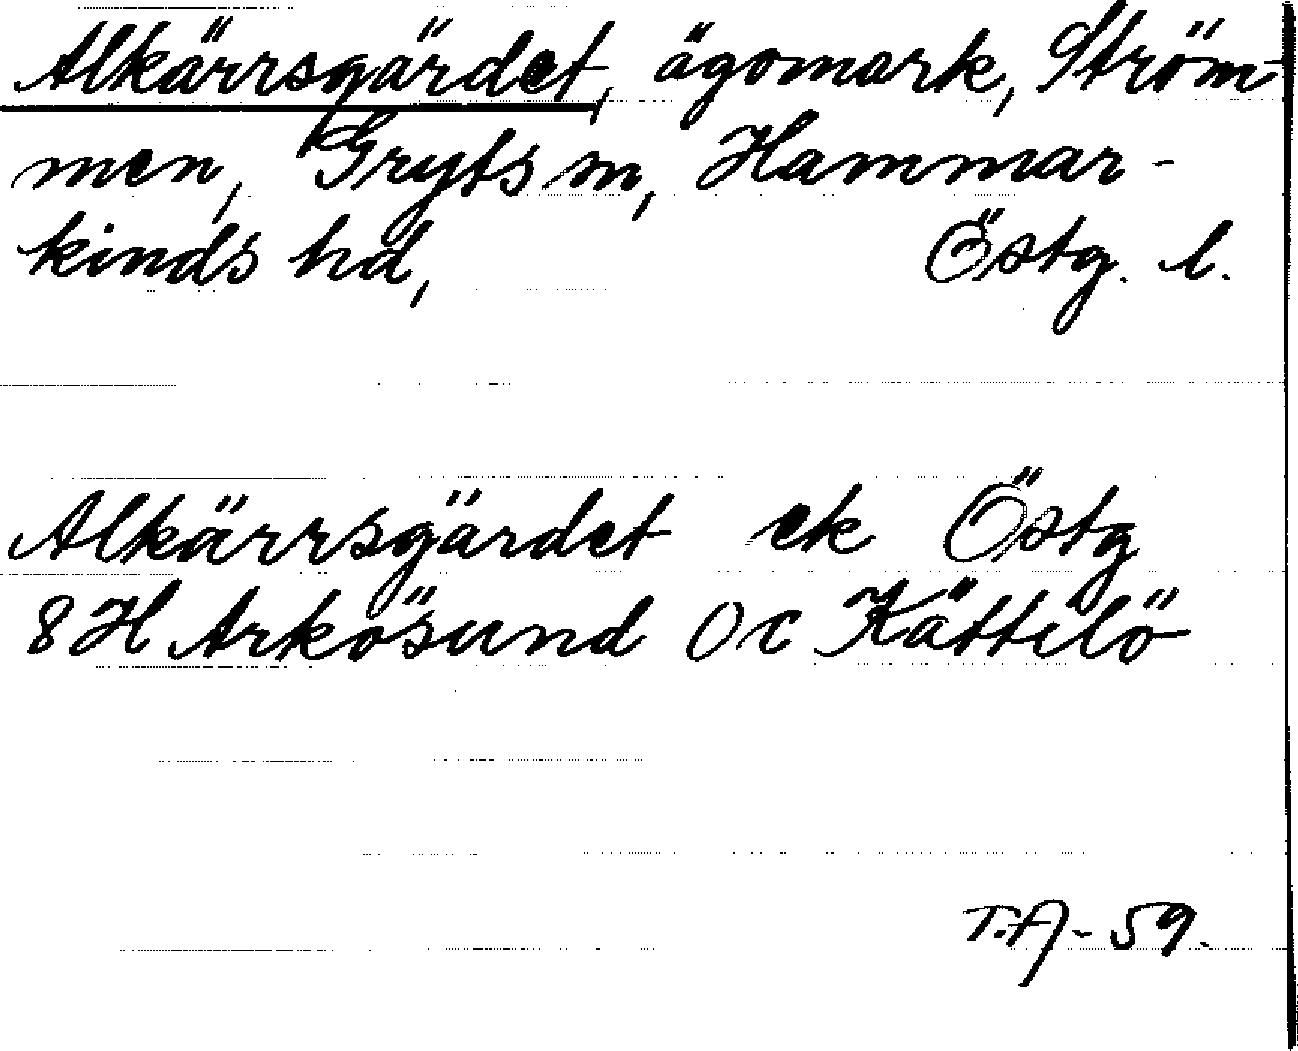 Alkärrsgärdet, ägomark, Ström-
men, Gryts sn, Hammar-
kinds hd, Östg. l.
Alkärrsgärdet ek Östg
8H Arkösund 0c Kättilö
T.A-59.